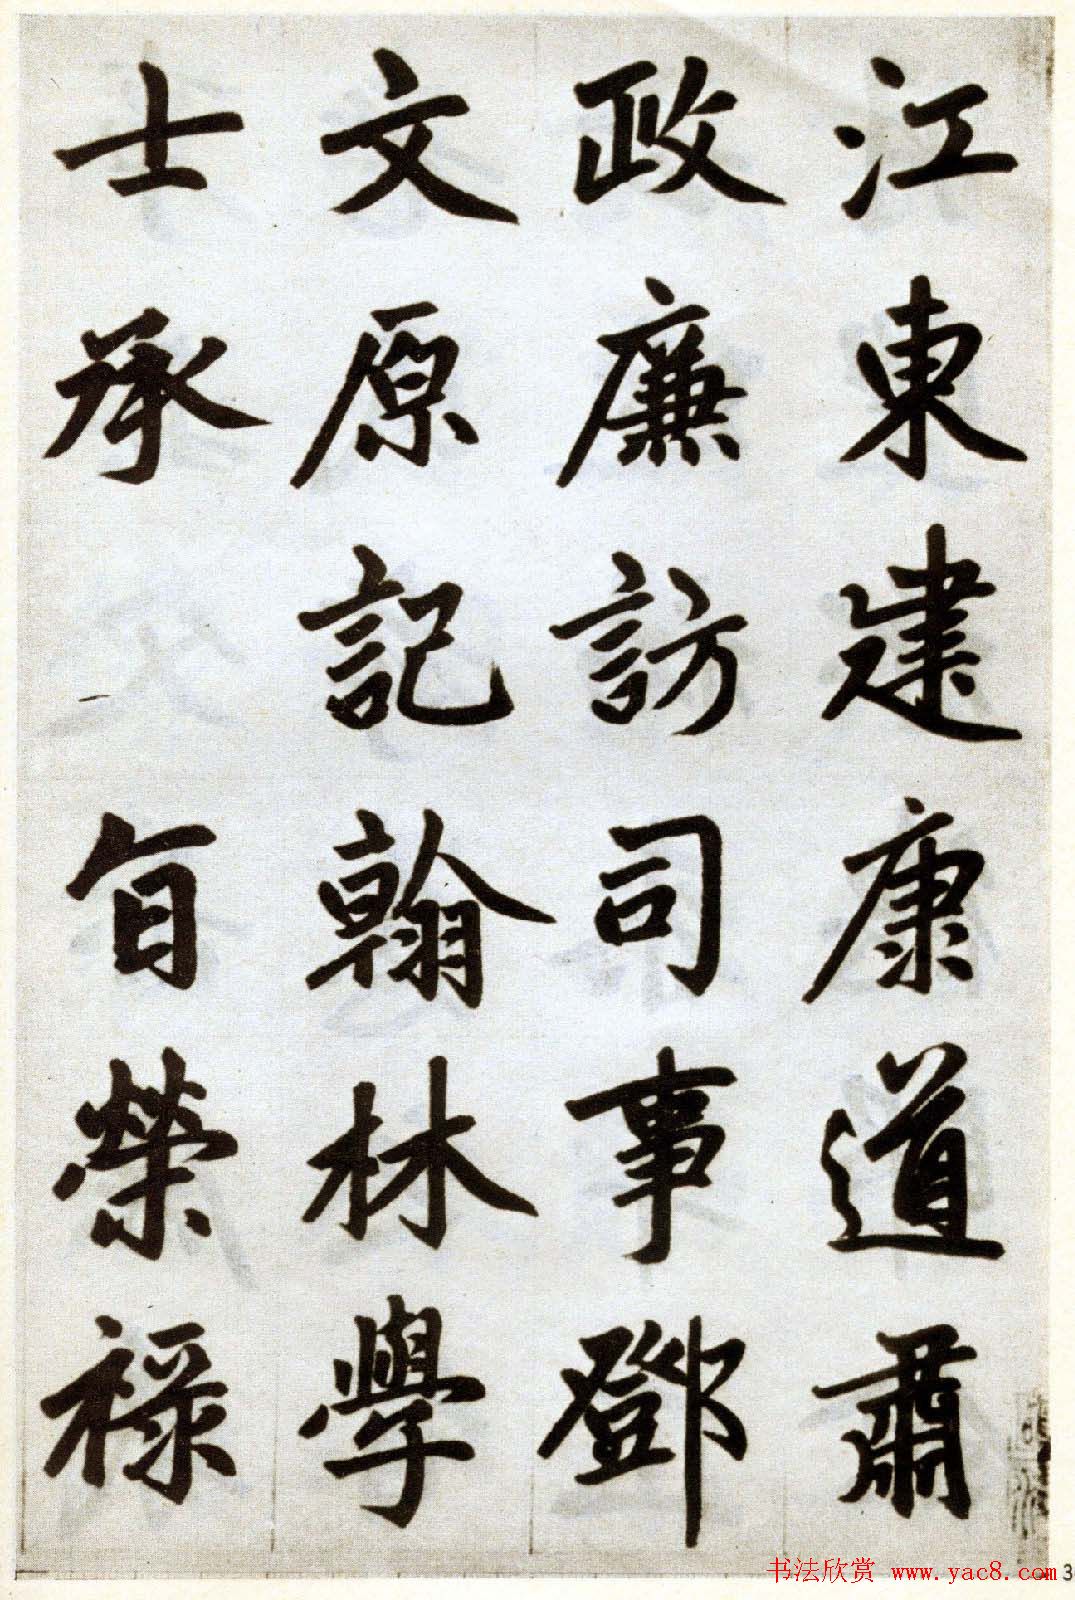 江東建康道肅
政廉訪司事鄧
文原記翰林學
士承旨榮祿
书法欣赏 www.yac8.com
3